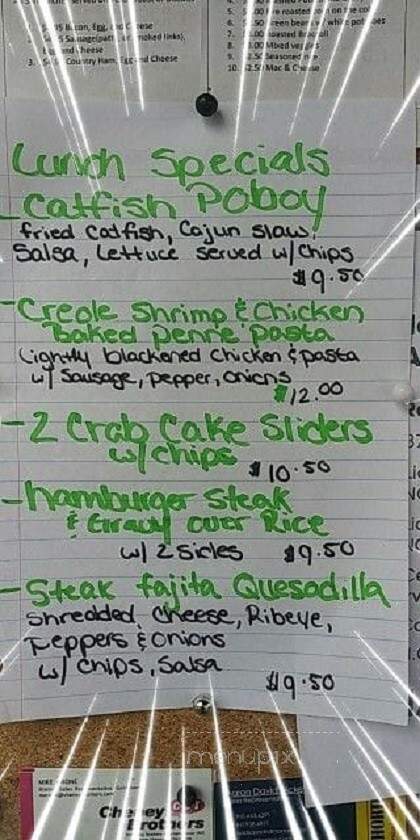 5.00 Fire roasted corn on the cob
6. $2.50 Green beans w/ white potatoes
7. $3.00 Roasted Broccoli
8. $3.00 Mixed veggies
9. $2.50 Seasoned rice
10. $2.50 Mac & Cheese
Bacon, Egg, and Cheese
Sausage(patty or smoked links),
Egg and Cheese
3. Country Ham, Egg and Cheese
Lunch Specials
- Catfish Poboy
fried catfish, Cajun Slaw,
Salsa, Lettuce served w/chips
$9.50
- Creole Shrimp & Chicken
baked penne pasta
Lightly blackened chicken & pasta
w/ Sausage, pepper, onions
$12.00
- 2 Crab Cake Sliders
w/chips $10.50
- hamburger Steak
& Gravy over Rice
w/ 2 sides $9.50
- Steak fajita Quesadilla
Shredded Cheese, Ribeye,
Peppers & Onions
w/ chips, Salsa
$9.50
menupix
Cheney
Brothers